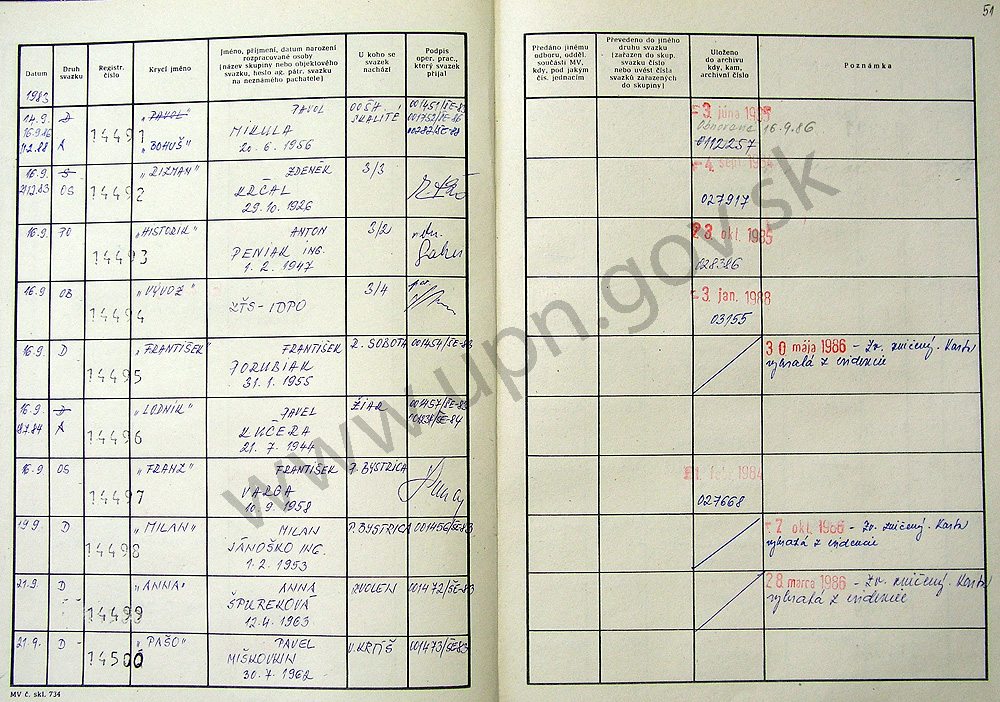 51
Datum
Druh svazku
Registr. číslo
Krycí jméno
Jméno, příjmení, datum narození
rozpracované osoby
(název skupiny nebo objektového
svazku, heslo ag. pátr. svazku
na neznámého pachatele)
U koho se
svazek
nachází
Podpis
oper. prac.,
který svazek
přijal
Předáno jinému
odboru, odděl.
součásti MV,
kdy, pod jakým
čís. jednacím
Převedeno do jiného
druhu svazku
(zařazen do skup.
svazku číslo
nebo uvést čísla
svazků zařazených
do skupiny)
Uloženo
do archívu
kdy, kam,
archivní číslo
Poznámka
1983
14.9. D 14491 "PAVOL" PAVOL OOŠH. 001451/ŠE-83 - 3. júna 1985
16.9.86 MIKULA SKALITÉ 001752/ŠE-86 Obnovené 16.9.86
11.2.88 A "BOHUŠ" 20. 6. 1956 0112257
16.9. S 14492 "RIZMAN" ZDENĚK 3/3
OS KRČAL
29. 10. 1926 027917
16.9. PO 14493 "HISTORIK" ANTON 3/2 23. okt. 1985
PENIAK ING.
1. 2. 1947 028386
16.9 OB 14494 "VÝVOZ" 3/4 - 3. jan. 1988
ZŤS-IDPO 03155
16.9. D 14495 "FRANTIŠEK" FRANTIŠEK R. SOBOTA 001454/ŠE-83 30 mája 1986 - Zv. zničený. Karta
PORUBIAK vybratá z evidencie
31. 1. 1955
16.9. D 14496 "LODNÍK" PAVEL ŽIAR 001457/ŠE-83
A KUČERA
21. 7. 1944
16.9 OS 14497 "FRANZ" FRANTIŠEK P. BYSTRICA
VARGA
10. 9. 1958 027668
19.9. D 14498 "MILAN" MILAN P. BYSTRICA 001456/ŠE-83 - 7 okt. 1986 - Zv. zničený. Karta
JÁNOŠKO ING. vybratá z evidencie
1. 2. 1953
21.9. D 14499 "ANNA" ANNA ZVOLEN 001472/ŠE-83 28 marca 1986 - Zv. zničený. Karta
ŠPUREKOVÁ vybratá z evidencie
12. 4. 1963
21.9. D 14500 "PAŠO" PAVEL V. KRTÍŠ 001473/ŠE-83
MIŠKOVKIN
30. 7. 1962
MV č. skl. 734
www.upn.gov.sk